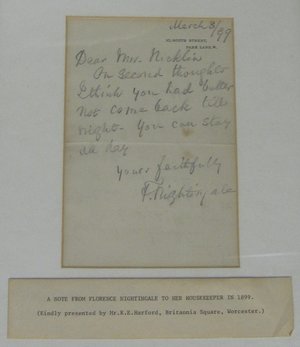 March 3/99
10, SOUTH STREET,
PARK LANE. W.
Dear Mrs. Nicklin
On second thoughts
I think you had better
not come back till
night- You can stay
all day
yours faithfully
F. Nightingale
A NOTE FROM FLORENCE NIGHTINGALE TO HER HOUSEKEEPER IN 1899.
(Kindly presented by Mr.K.E.Harford, Britannia Square, Worcester.)